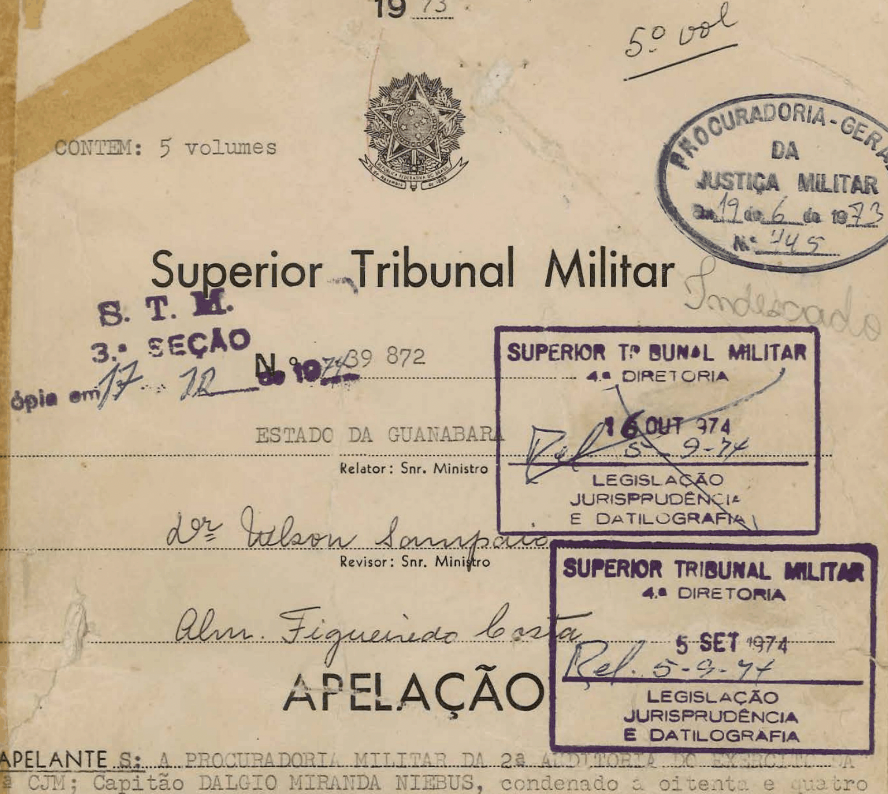 19 73
5º vol
CONTEM: 5 volumes
PROCURADORIA-GERAL
DA
JUSTIÇA MILITAR
Em 19 de 6 de 1973
N.º 445
Superior Tribunal Militar
Indexado
S. T. M.
3.ª SEÇÃO
ópia em 17 12 de 1974
N.º 39 872
SUPERIOR TRIBUNAL MILITAR
4.ª DIRETORIA
16 OUT 974
Rel 5-9-74
LEGISLAÇÃO
JURISPRUDÊNCIA
E DATILOGRAFIA
ESTADO DA GUANABARA
Relator: Snr. Ministro
Dr. Nelson Sampaio
Revisor: Snr. Ministro
Alm. Figueiredo Costa
SUPERIOR TRIBUNAL MILITAR
4.ª DIRETORIA
5 SET 1974
Rel. 5-9-74
LEGISLAÇÃO
JURISPRUDÊNCIA
E DATILOGRAFIA
APELAÇÃO
APELANTE S: A PROCURADORIA MILITAR DA 2ª AUDITORIA DO EXERCITO DA
ª CJM; Capitão DALGIO MIRANDA NIEBUS, condenado a oitenta e quatro